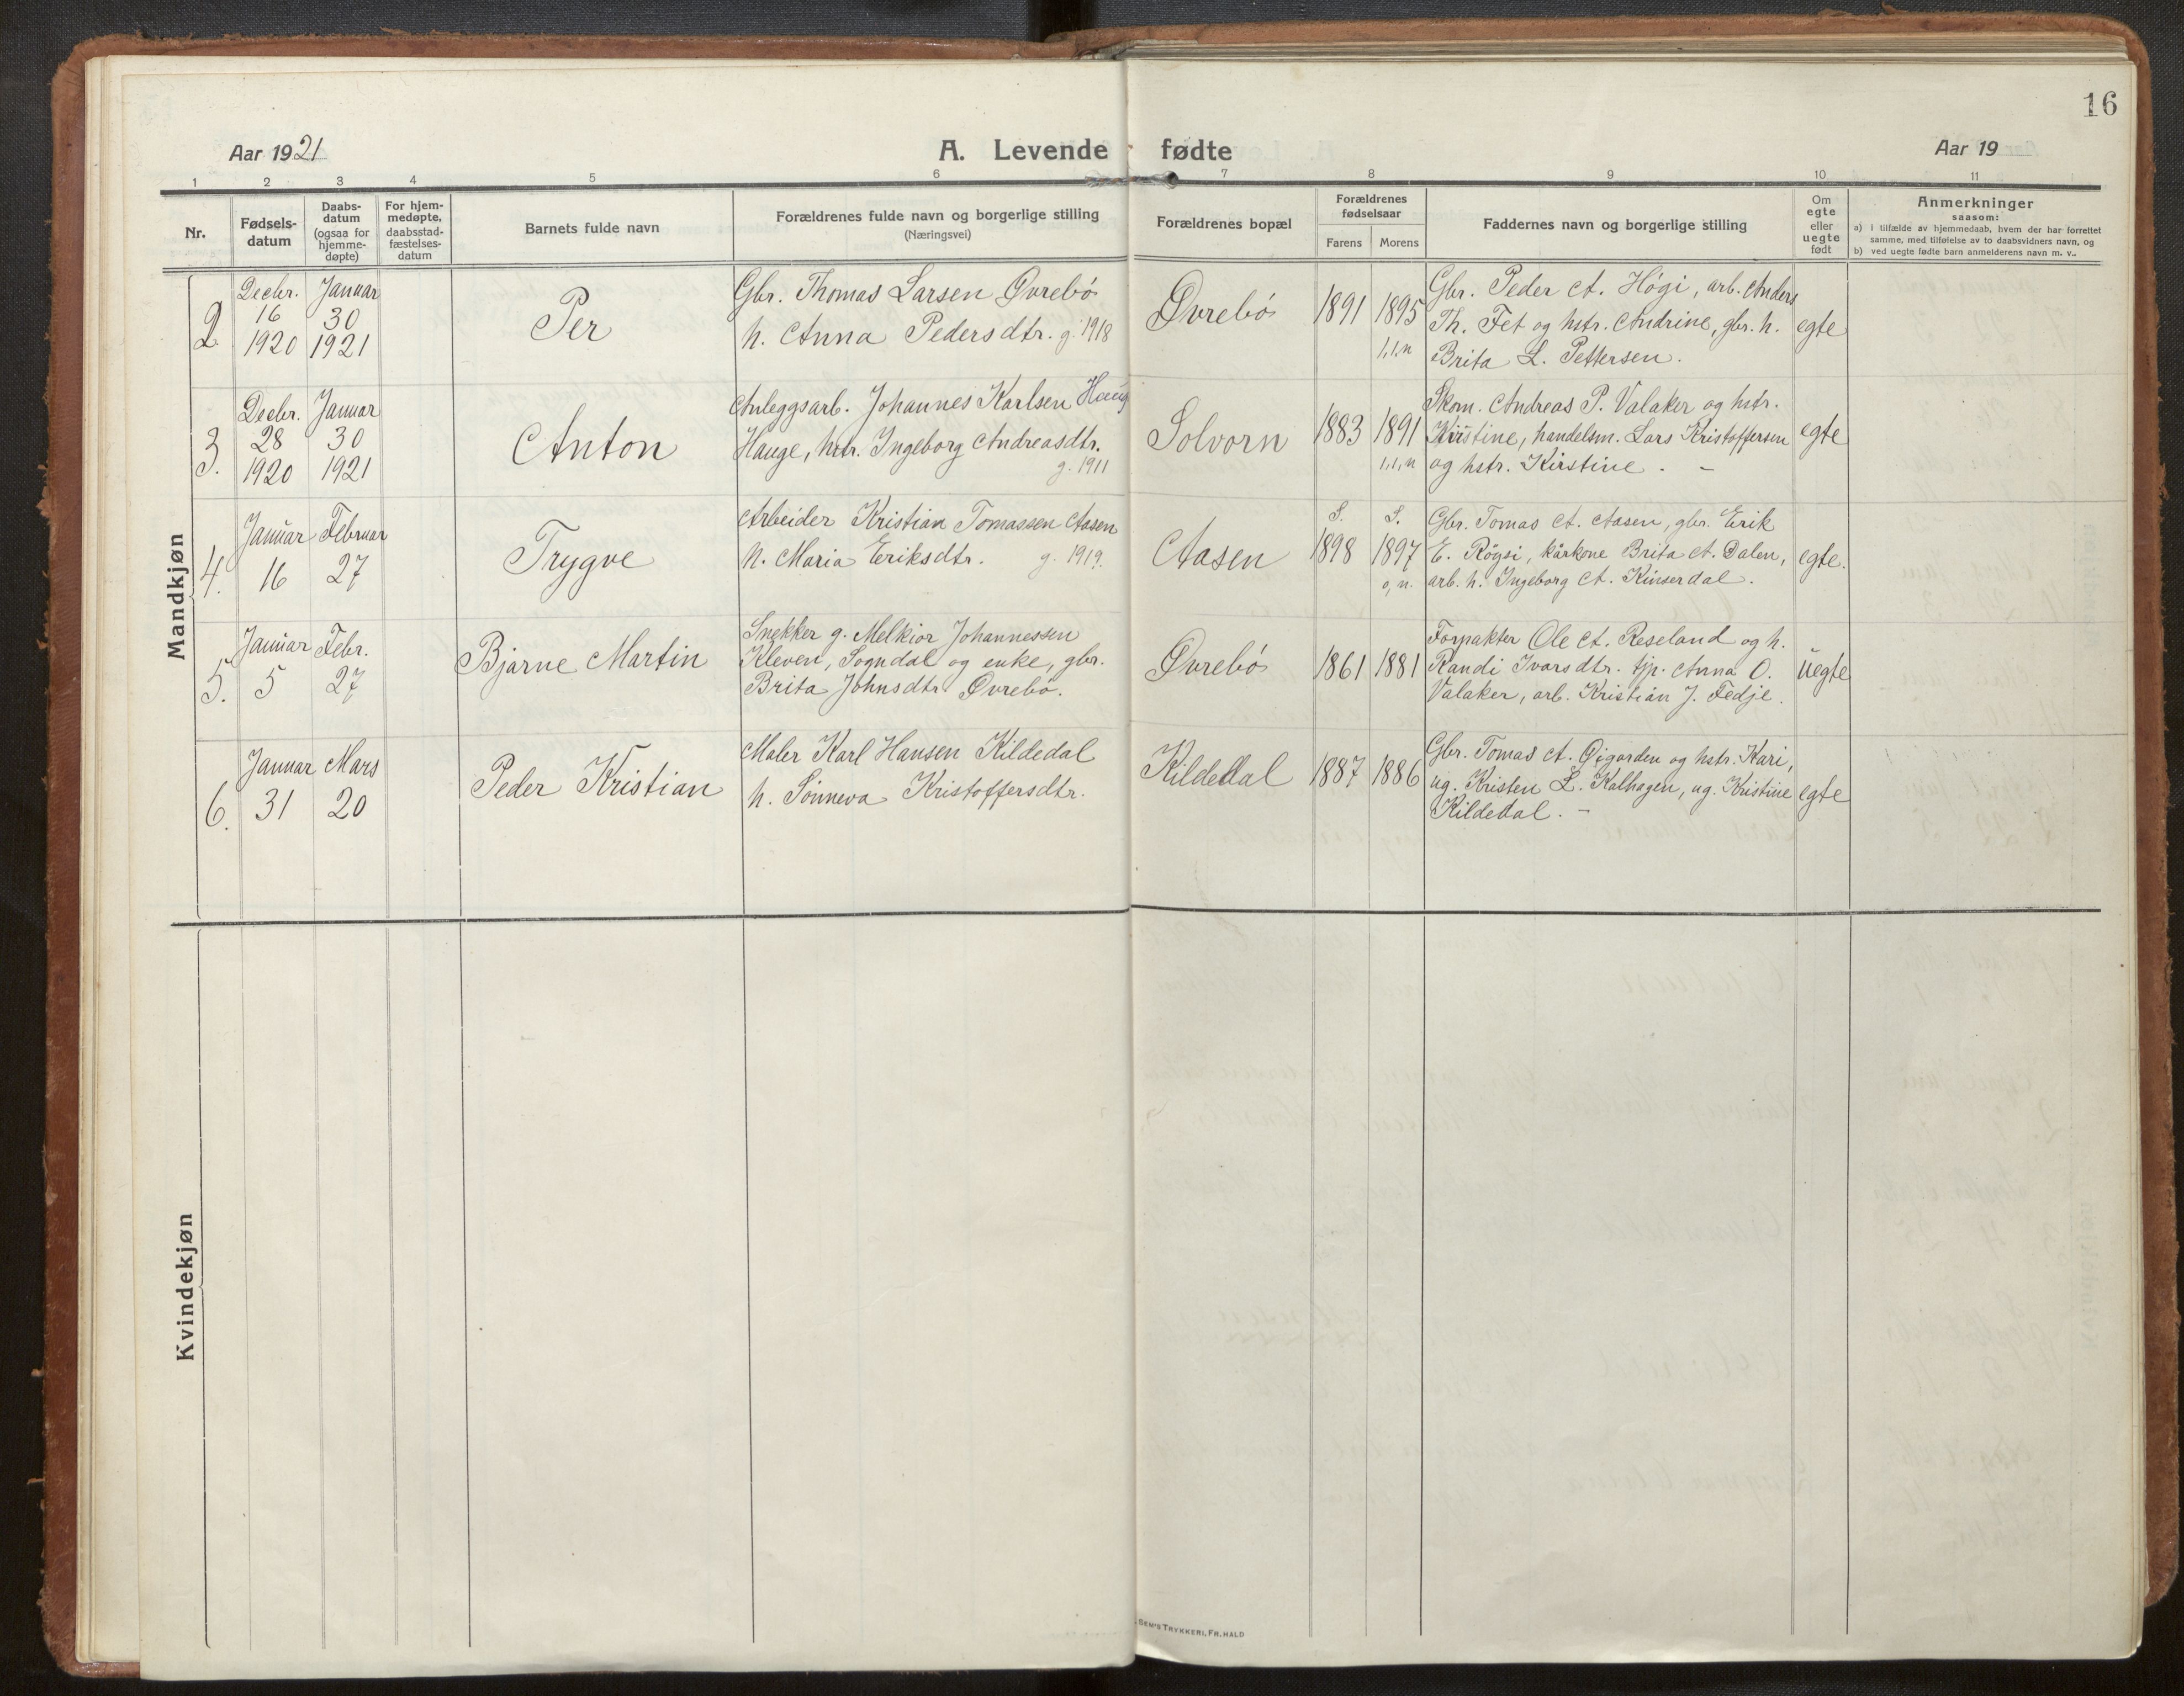 16
Aar 1921
A. Levende fødte
Aar 19
1 2 3 4 5 6 7 8 9 10 11
Nr.
Fødsels-
datum
Daabs-
datum
(ogsaa for
hjemme-
døpte)
For hjem-
medøpte,
daabsstad-
fæstelses-
datum
Barnets fulde navn
Forældrenes fulde navn og borgerlige stilling
(Næringsvei)
Forældrenes bopæl
Forældrenes
fødselsaar
Farens Morens
Faddernes navn og borgerlige stilling
Om
egte
eller
uegte
født
Anmerkninger
saasom:
a) i tilfælde av hjemmedaab, hvem der har forrettet
samme, med tilføielse av to daabsvidners navn, og
b) ved uegte fødte barn anmelderens navn m. v..
Mandkjøn
2.
Decbr.
16
1920
Januar
30
1921
Per
Gbr. Thomas Larsen Øvrebö
h. Anna Pedersdtr. g. 1918
Øvrebö
1891
1895
1,1,n
Gbr. Peder A. Högi, arb. Anders
Th. Fet og hstr. Andrine, gbr. h.
Brita L. Pettersen.
egte
3.
Decbr.
28
1920
Januar
30
1921
Anton
Anleggsarb. Johannes Karlsen Haug
Hauge, hstr. Ingeborg Andreasdtr.
g. 1911
Solvorn
1883
1891
1,1,n
Skom. Andreas P. Valaker og hstr.
Kristine, handelsm. Lars Kristoffersen
og hstr. Kirstine. -
egte
4.
Januar
16
Februar
27
Trygve
Arbeider Kristian Tomassen Aasen
h. Maria Eriksdtr. g. 1919.
Aasen
S.
1898
S.
1897
o, n.
Gbr. Tomas A. Aasen, gbr. Erik
E. Röysi, kårkone Brita A. Dalen,
arb. h. Ingeborg A. Kinserdal.
egte.
5.
Januar
5
Febr.
27
Bjarne Martin
Snekker g. Melkior Johannessen
Kleven, Sogndal og enke, gbr.
Brita Johnsdtr. Øvrebö.
Øvrebö
1861
1881
Forpakter Ole A. Reseland og h.
Randi Ivarsdtr. tjp. Anna O.
Valaker, arb. Kristian J. Fedje.
uegte
6.
Januar
31
Mars
20
Peder Kristian
Maler Karl Hansen Kildedal
h. Sönneva Kristoffersdtr.
Kildedal
1887
1886
Gbr. Tomas A. Øigarden og hstr. Kari,
ug. Kristen L. Kalhagen, ug. Kristine
Kildedal. -
egte
Kvindekjøn
SEM'S TRYKKERI, FR. HALD